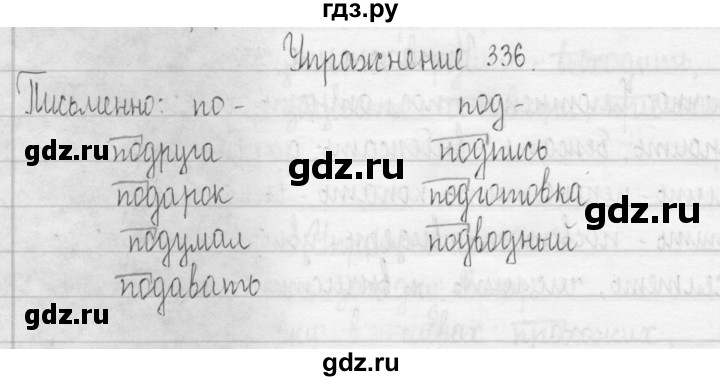 гдз.ру
Упражнение 336.
Письменно: по- под
подруга подпись
подарок подготовка
подумал подводный
подавать
gdz.ru
gdz.ru
gdz.ru
gdz.ru
gdz.ru